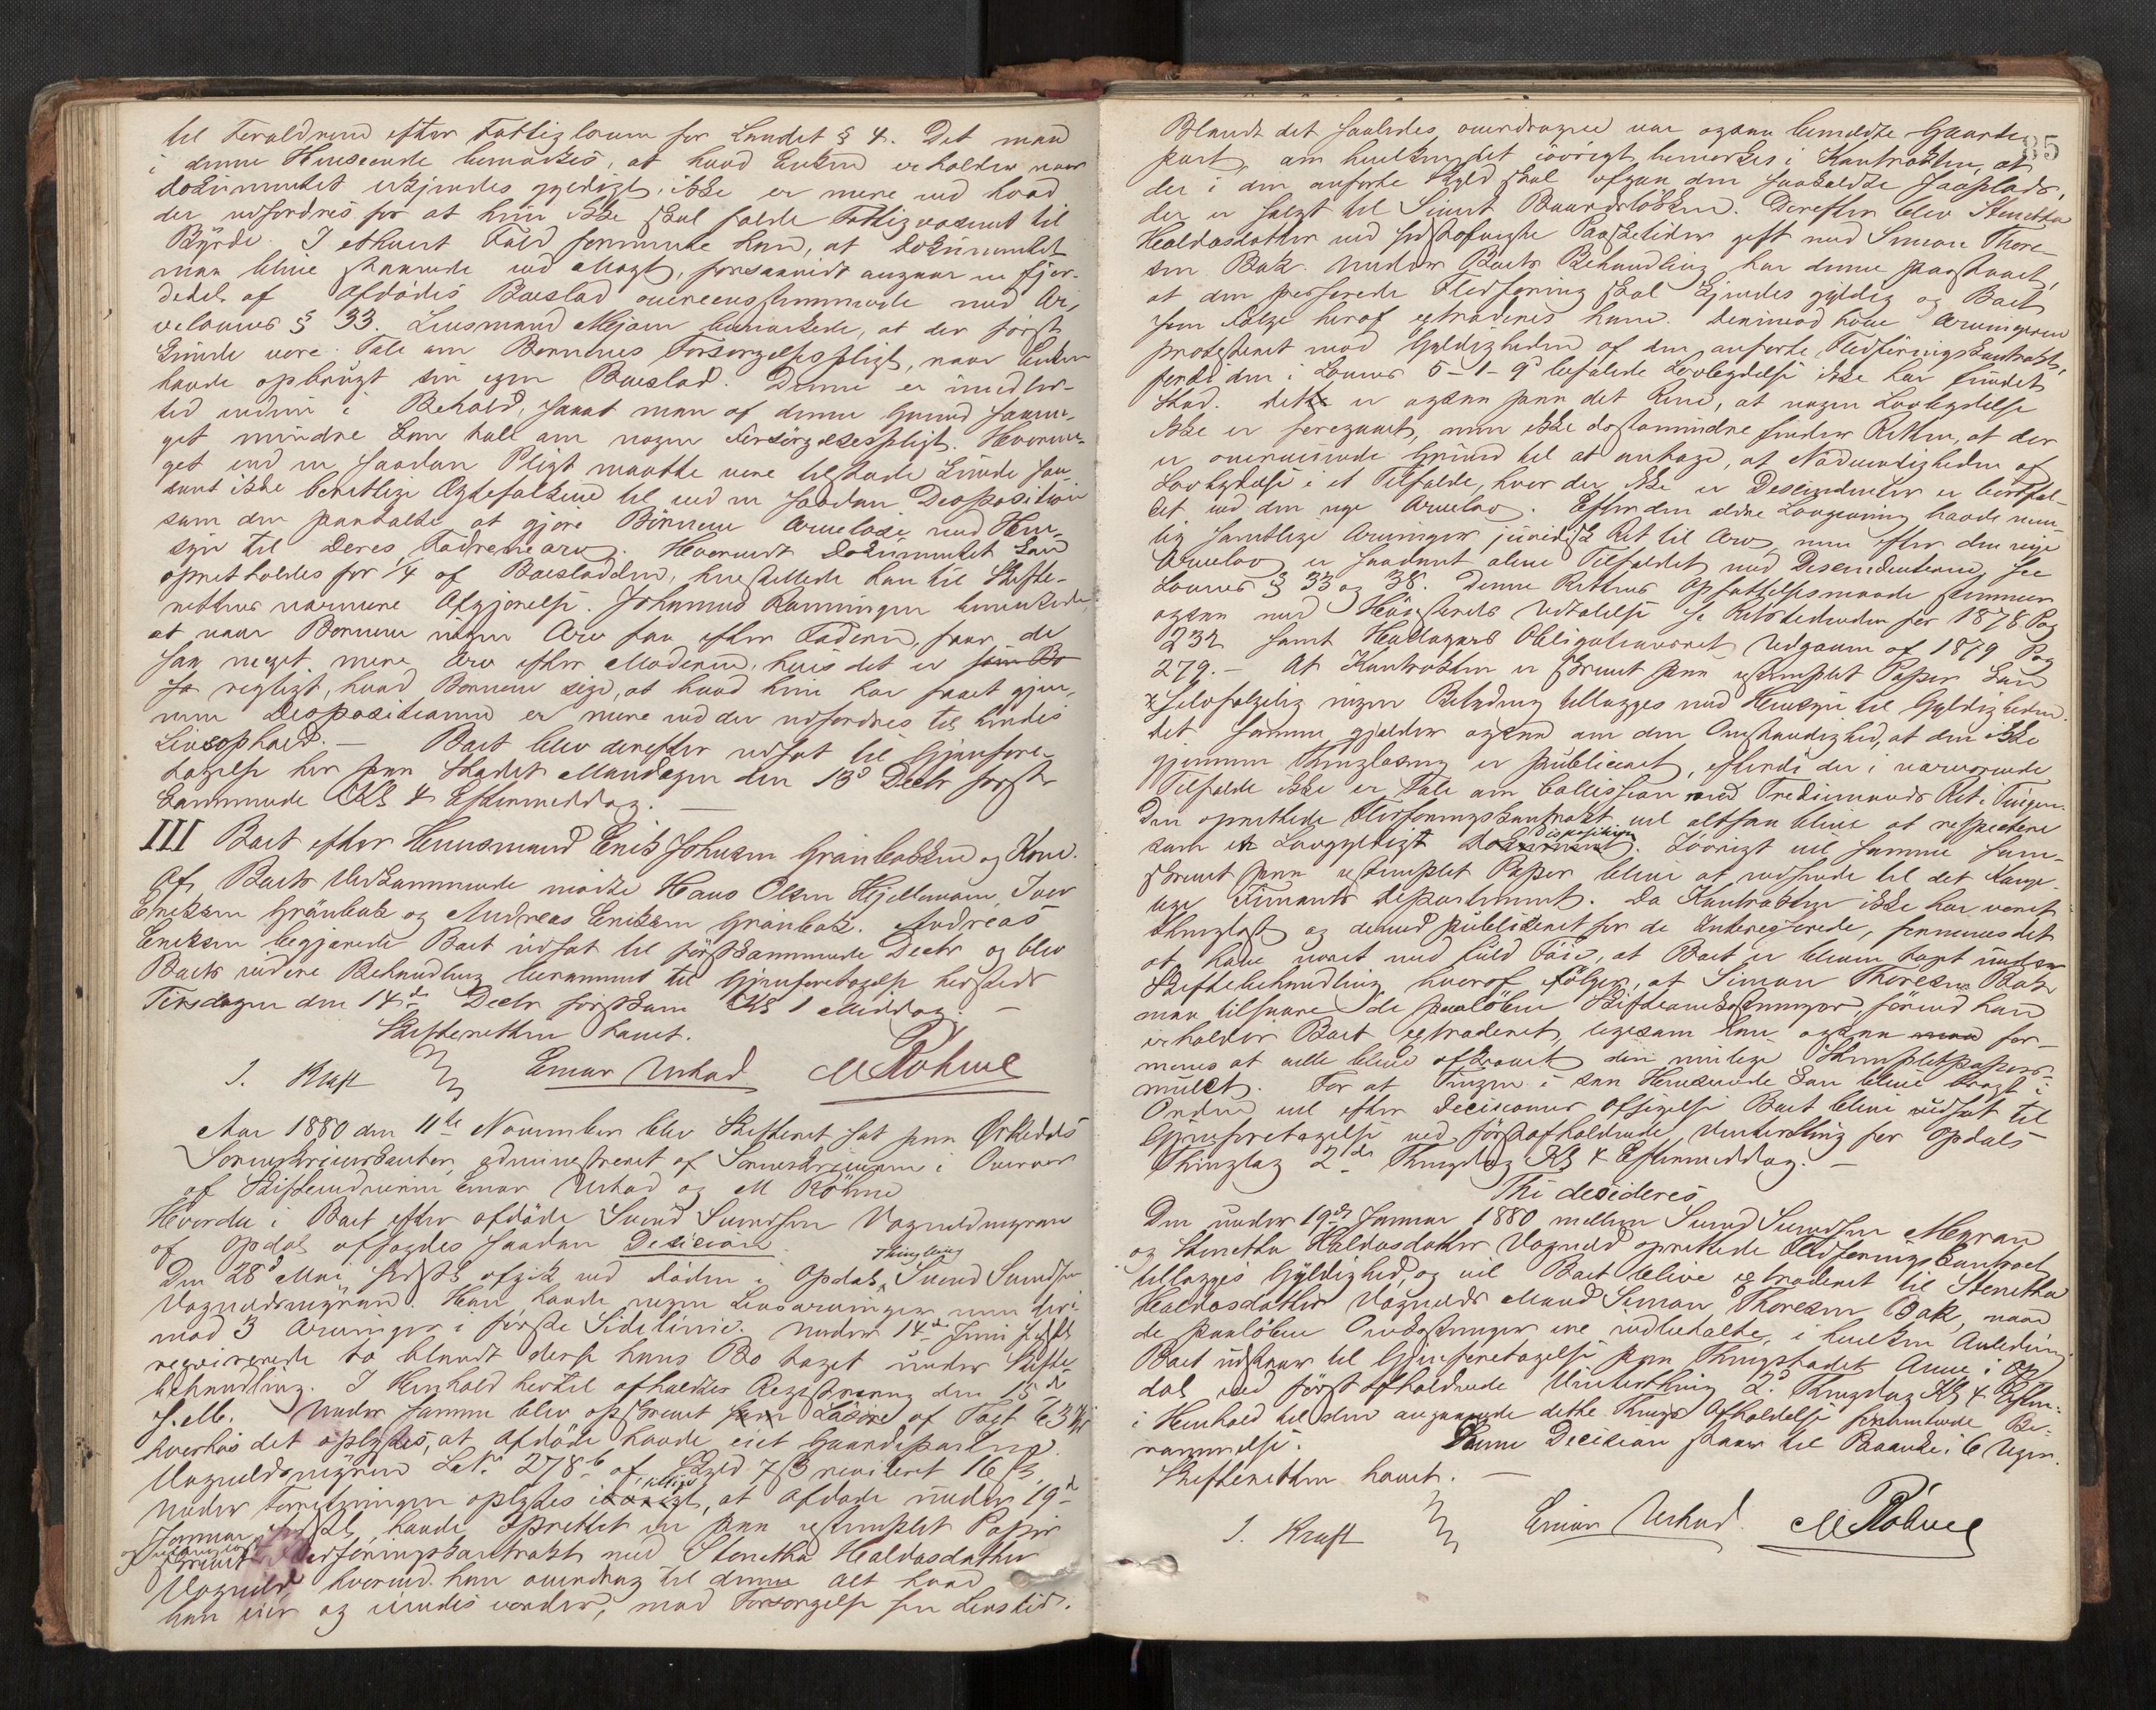 til Forældrene efter Fattigloven for Landet § 4. Det maa
i denne Henseende bemærkes, at hvad Enken erholder naar
Dokumentet erkjendes gyldigt, ikke er mere end hvad
der udfordres for at hun ikke skal falde Fattigvæsenet til
Byrde. I ethvert Fald formente han, at Dokumentet
maa blive staaende ved Magt, forsaavidt angaar en fjer-
dedel af Afdødes Boeslod overensstemmende med Ar-
velovens § 33. Lensmand Mjøen bemærkede, at der først
kunde være Tale om Børnenes Forsørgelsespligt, naar Enken
havde opbrugt sin egen Boeslod. Denne er imidler-
tid endnu i Behold, saaat man af denne Grund saame-
get mindre kan tale om nogen Forsørgelsespligt. Hvorme-
get end en saadan Pligt maatte være tilstede kunde saa-
dant ikke berettige Ægtefolkene til ved en saadan Disposition
som den paatalte at gjøre Børnene arveløse med Hen-
syn til deres Fædrenearv. Hvorvidt Dokumentet kan
opretholdes for 1/4 af Boeslodden, henstillede han til Skifte-
rettens nærmere Afgjørelse. Johannes Rønningen bemærkede,
at naar Børnene ingen Arv faa efter Faderen, faar de
saa meget mere Arv efter Moderen, hvis det er som Bø
så rigtigt, hvad Børnene sige, at hvad hun har faaet gjen-
nem Dispositionen er mere end der udfordres til hendes
Livsophold. — Boet blev derefter udsat til Gjenfore-
tagelse her paa Stedet Mandagen den 13de Decbr først-
kommende Kl 4 Eftermiddag. —
III Boet efter Huusmand Erik Johnsen Grønbakken og Kone.
Af Boets Vedkommende mødte Hans Olsen Kjellemoen, Iver
Eriksen Grønbak og Andreas Eriksen Grønbak. Andreas
Eriksen begjærede Boet udsat til førstkommende Decbr og blev
Boets videre Behandling berammet til Gjenforetagelse hersteds
Tirsdagen den 14de Decbr førstkom Kl 1 Middag. —
Skifteretten hævet.
J. Kraft Einar Urhad M Röhme
Aar 1880 den 11te November blev Skifteret sat paa Orkedals
Sorenskriverkontor, administreret af Sorenskriveren i Overvær
af Skiftevidnerne Einar Urhad og M Röhme
Hvorda i Boet efter afdøde Svend Svendsen Vognildmyran
af Opdal afsagdes saadan Decision
Den 28de Mai sidstl. afgik ved Døden i Opdals Thinglaug Svend Svendsen
Vognildsmyran. Han havde ingen Livsarvinger, men deri-
mod 3 Arvinger i første Sidelinie. Under 14de Juni sidstl.
reqvirerede to blandt disse hans Bo taget under Skifte-
behandling. I Henhold hertil afholdtes Registrering den 15de
s. M. Under samme blev opskrevet som Løsøre af Taxt 63 Kr
hvorhos det oplystes, at Afdøde havde eiet Gaardeparten
Vognildsmyren Løb No 278b af Skyld 7 ß revideret 16 ß.
Under Forretningen oplystes tillige, at Afdøde under 19de
Januar sidstl. havde oprettet en paa ustemplet Papir
og utinglæst
skrevet Fledføringskontrakt med Stenetha Haldosdatter
Vognild, hvorved han overdrog til denne alt hvad
han eier og eiendes vorder, mod Forsørgelse for Livstid.
35
Blandt det saaledes overdragne var ogsaa bemeldte Gaarde
part, om hvilken det iøvrigt bemærkes i Kontrakten, at
der i den anførte Skyld skal afgaa den saakaldte Jaaplads,
der er solgt til Sivert Baardsløkken. Derefter blev Stenetha
Haldosdatter ved sidstafvigte Paasketider gift med Simon Thore-
sen Bak. Under Boets Behandling har denne paastaaet,
at den passerede Fledføring skal kjendes gyldig og Boet
som Følge heraf extraderes ham. Derimod have Arvingerne
protesteret mod Gyldigheden af den anførte Fledføringskontrakt,
fordi den i Lovens 5-1-9de befalede Lovbydelse ikke har fundet
Sted. Dette er ogsaa paa det Rene, at nogen Lovbydelse
ikke er foregaaet, men ikke destomindre finder Retten, at der
er overveiende Grund til at antage, at Nødvendigheden af
Lovbydelse i et Tilfælde, hvor der ikke er Descendenter er bortfal-
det ved den nye Arvelov. Efter den ældre Lovgivning havde nem-
lig samtlige Arvinger juridisk Ret til Arv, men efter den nye
Arvelov er saadant alene Tilfældet med Descendenterne, see
Lovens § 33 og 38. Denne Rettens Opfattelsesmaade stemmer
ogsaa med Høiesterets Udtalelse se Retstidenden for 1878 Pag
232 samt Hallagers Obligationsret Udgaven af 1879 Pag
279. — At Kontrakten er skrevet paa ustemplet Papir kan
selvfølgelig ingen Betydning tillægges med Hensyn til Gyldigheden.
Det samme gjælder ogsaa om den Omstændighed, at den ikke
gjennem Thinglæsning er publiceret, efterdi der i nærværende
Tilfælde ikke er Tale om Collission med Trediemands Ret i Tingen.
Den oprettede Fledføringskontrakt vil altsaa blive at respectere
som en Lovgyldigt Disposition. Iøvrigt vil samme som
skrevet paa ustemplet Papir blive at indsende til det Konge-
lige Finants Departement. Da Kontrakten ikke har været
thinglæst og derved publiceret for de Interesserede, formenes det
at have været med fuld Føie, at Boet er bleven taget under
Skiftebehandling, hvoraf følger, at Simon Thoresen Bak
maa tilsvare de paaløbne Skifteomkostninger, førend han
erholder Boet extraderet, ligesom han ogsaa for-
menes at ville blive afkrævet den mulige Stempletpapirs-
mulct. For at Tingen i saa Henseende kan blive bragt i
Orden vil efter Decisionens Afsigelse Boet blive udsat til
Gjenforetagelse ved førstafholdende Vinterthing for Opdals
Thinglag 2de Thingdag Kl 4 Eftermiddag. —
Thi decideres
Den under 19de Januar 1880 mellem Svend Svendsen Myran
og Stenetha Haldosdatter Vognild oprettede Fledføringskontract
tillægges Gyldighed, og vil Boet blive extraderet til Stenetha
Haldosdatter Vognilds Mand Simon Thoresen Bak, naar
de paaløbne Omkostninger ere indbetalte, i hvilken Anledning
Boet udstaar til Gjenforetagelse paa Thingstedet Aune i Op-
dal ved først afholdende Vinterthing 2de Thingdag Kl 4 Efterm.
i Henhold til den angaaende dette Things Afholdelse forventende Be-
rammelse. Denne Decision staar til Paaanke i 6 Uger.
Skifteretten hævet. —
J. Kraft Einar Urhad. M Röhme